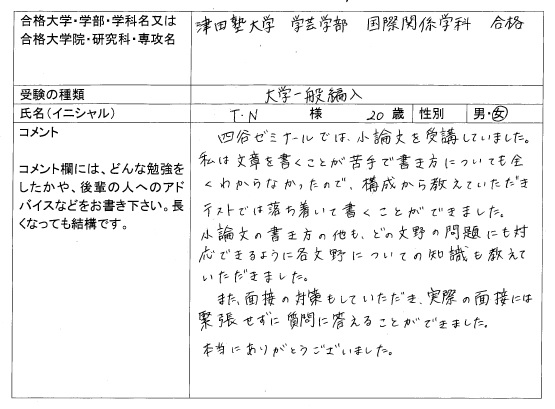 合格大学・学部・学科名又は 津田塾大学 学芸学部 国際関係学科 合格
合格大学院・研究科・専攻名
受験の種類 大学一般編入
氏名(イニシャル) T・N 様 20 歳 性別 男・女
コメント
コメント欄には、どんな勉強を
したかや、後輩の人へのアド
バイスなどをお書き下さい。長
くなっても結構です。
四谷ゼミナールでは、小論文を受講していました。
私は文章を書くことが苦手で書き方についても全
くわからなかったので、構成から教えていただき
テストでは落ち着いて書くことができました。
小論文の書き方の他も、どの文野の問題にも対
応できるように各文野についての知識も教えて
いただきました。
また、面接の対策もしていただき、実際の面接には
緊張せずに質問に答えることができました。
本当にありがとうございました。